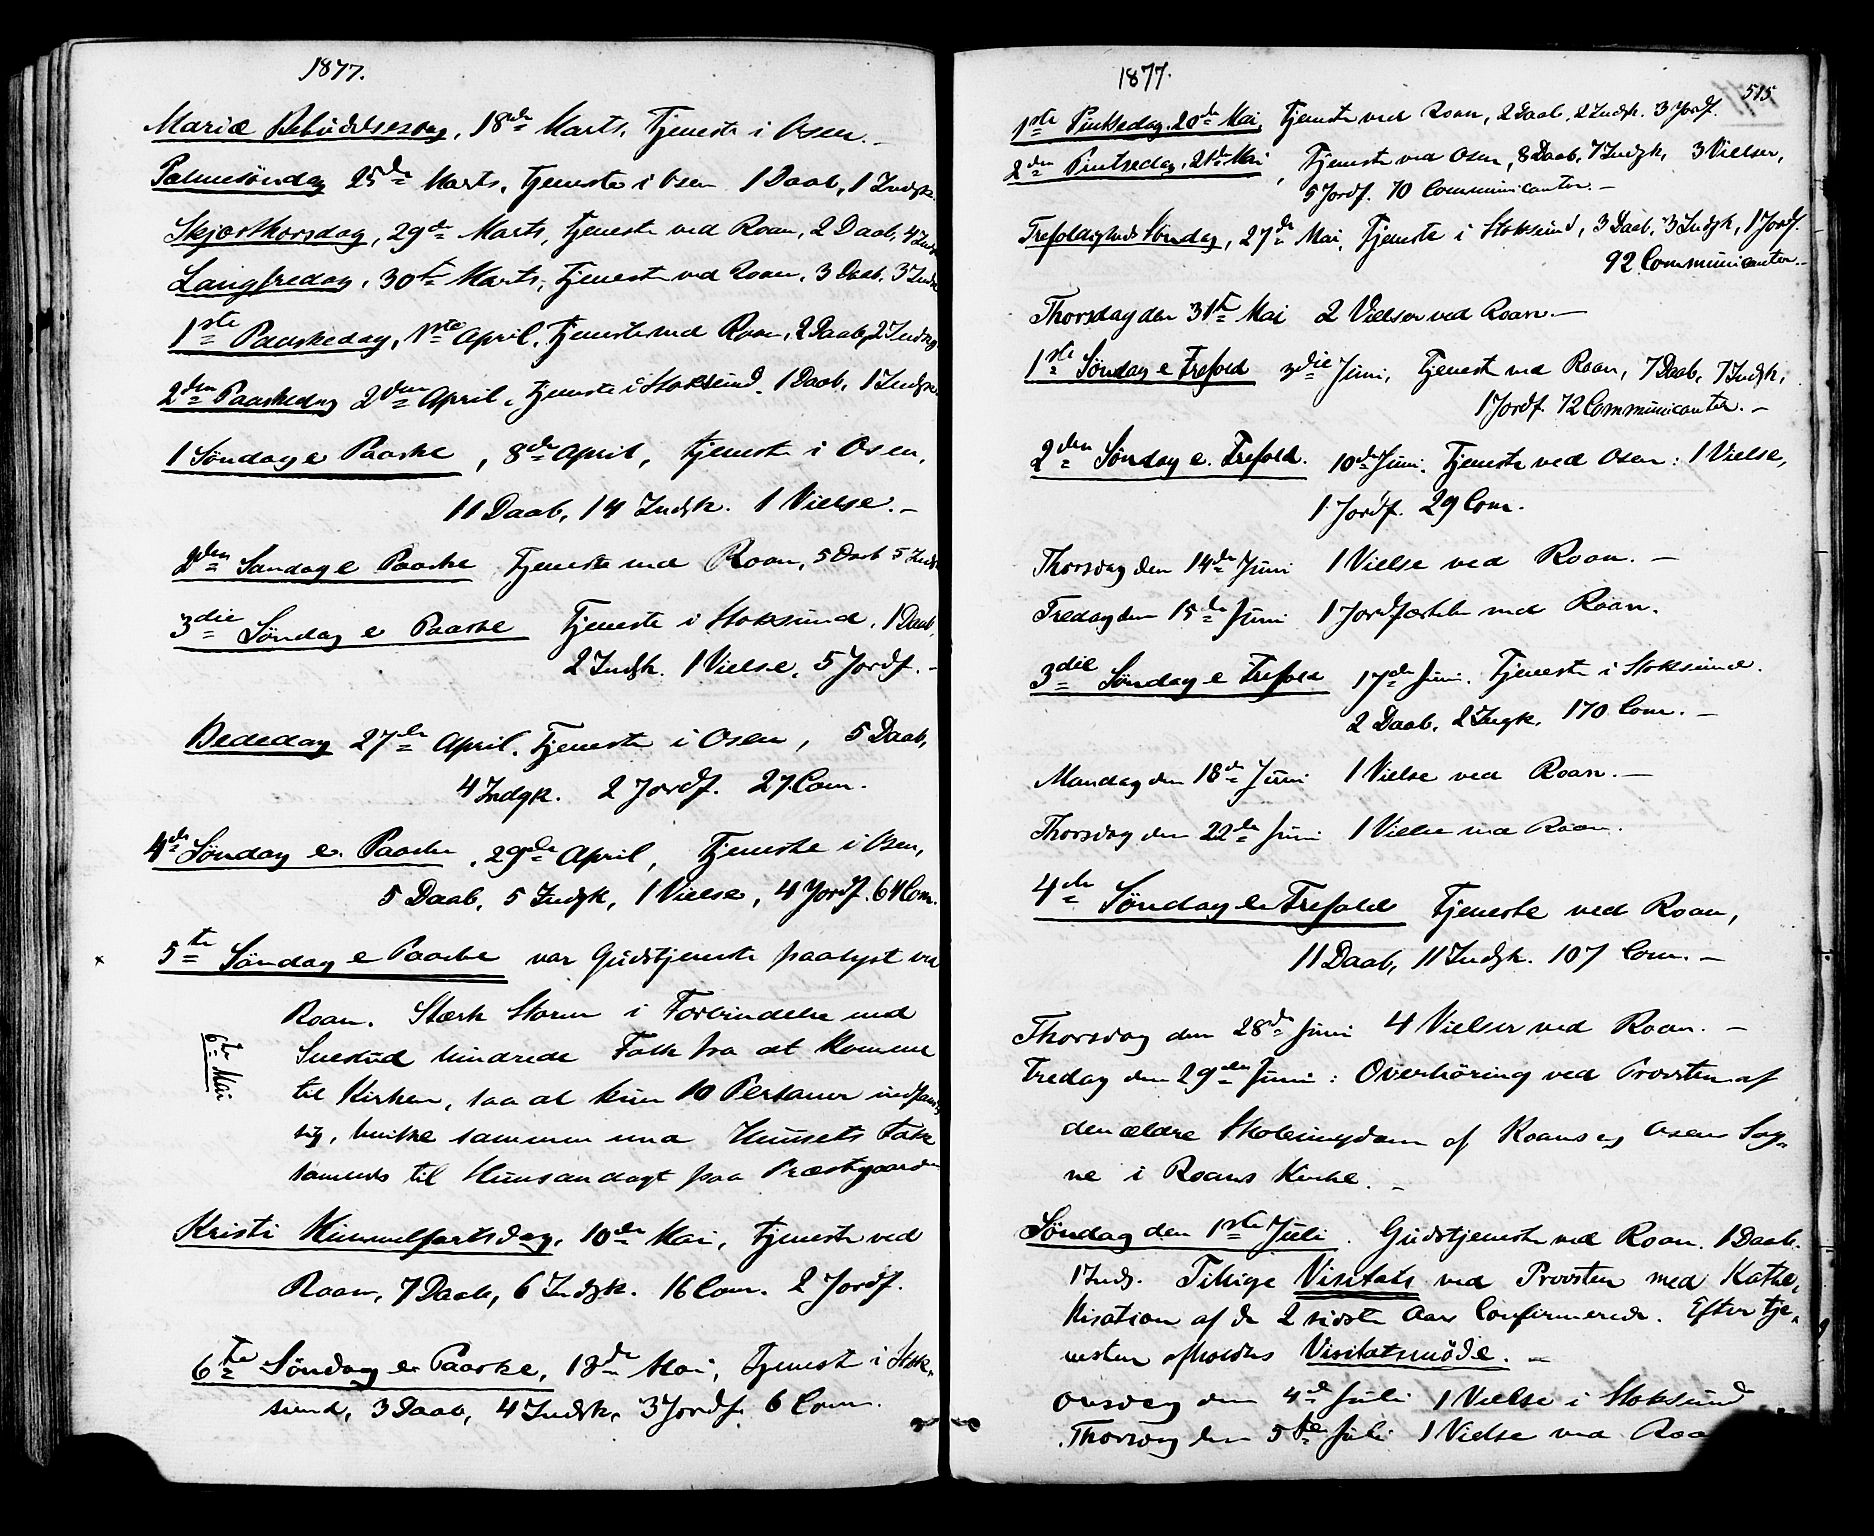 1877.
Mariæ Bebudelsesdag, 18de Marts, Tjeneste i Osen.
Palmesøndag 25de Marts, Tjeneste i Osen 1 Daab, 1 Indgk.
Skjærthorsdag, 29de Marts, Tjeneste ved Roan, 2 Daab, 4 Indg
Langfredag, 30te Marts, Tjeneste ved Roan, 3 Daab, 3 Indg
1ste Paaskedag, 1ste April, Tjeneste ved Roan, 2 Daab, 2 Indgk
2den Paaskedag 2den April, Tjeneste i Stoksund. 1 Daab, 1 Indgk.
1 Søndag e Paaske, 8de April, Tjeneste i Osen,
11 Daab, 14 Indgk. 1 Vielse.–
2den Søndag e Paaske Tjeneste ved Roan, 5 Daab 5 Indg
3die Søndag e Paaske Tjeneste i Stoksund, 1 Daab,
2 Indgk. 1 Vielse, 5 Jordf.–
Bededag 27de April, Tjeneste i Osen, 5 Daab,
4 Indgk. 2 Jordf. 27 Com.
4de Søndag e. Paaske, 29de April, Tjeneste i Osen,
5 Daab, 5 Indgk, 1 Vielse, 4 Jordf. 64 Com.
× 5te Søndag e Paaske var Gudstjeneste paalyst ved
Roan. Stærk Storm i Forbindelse med
6te Mai
Snekud hindrede Folk fra at komme
til Kirken, saa at kun 10 Personer indfandt
sig, hvilke sammen med Huusets Folk
samledes til Huusandagt paa Præstegaarden
Kristi Himmelfartsdag, 10de Mai, Tjeneste ved
Roan, 7 Daab, 6 Indgk. 16 Com. 2 Jordf.
6te Søndag e. Paaske, 13de Mai, Tjeneste i Stok-
sund, 3 Daab, 4 Indgk, 3 Jordf. 6 Com.
1877.
515
1ste Pinksedag, 20de Mai, Tjeneste ved Roan, 2 Daab, 2 Indgk. 3 Jordf.
2den Pintsedag, 21de Mai, Tjeneste ved Osen, 8 Daab, 7 Indgk, 3 Vielser,
5 Jordf. 70 Communicanter.–
Trefoldigheds Søndag, 27de Mai, Tjeneste i Stoksund, 3 Daab, 3 Indgk, 1 Jordf.
92 Communicanter.–
Thorsdag den 31te Mai 2 Vielser ved Roan.–
1ste Søndag e Trefold 3die Juni, Tjeneste ved Roan, 7 Daab, 7 Indgk,
1 Jordf. 72 Communicanter.–
2den Søndag e. Trefold. 10de Juni. Tjeneste ved Osen: 1 Vielse,
1 Jordf. 29 Com.
Thorsdag den 14de Juni 1 Vielse ved Roan.–
Fredag den 15de Juni 1 Jordfæstelse ved Roan.
3die Søndag e Trefold 17de Juni. Tjeneste i Stoksund.
2 Daab. 2 Ingk. 170 Com.–
Mandag den 18de Juni 1 Vielse ved Roan.–
Thorsdag den 22de Juni 1 Vielse ved Roan.
4de Søndag e Trefold Tjeneste ved Roan,
11 Daab, 11 Indgk. 107 Com.–
Thorsdag den 28de Juni 4 Vielser ved Roan.–
Fredag den 29de Juni: Overhøring ved Provsten af
den ældre Skoleungdom af Roans og Osens Sog-
ne i Roans Kirke.–
Søndag den 1ste Juli. Gudstjeneste ved Roan. 1 Daab.
1 Indg. Tillige Visitats ved Provsten med Kathe-
kisation af de 2 sidste Aars Confirmerede. Efter Tje-
nesten afholdtes Visitatsmøde.–
Onsdag den 4de Juli 1 Vielse i Stoksund
Thorsdag den 5te Juli 1 Vielse ved Roa